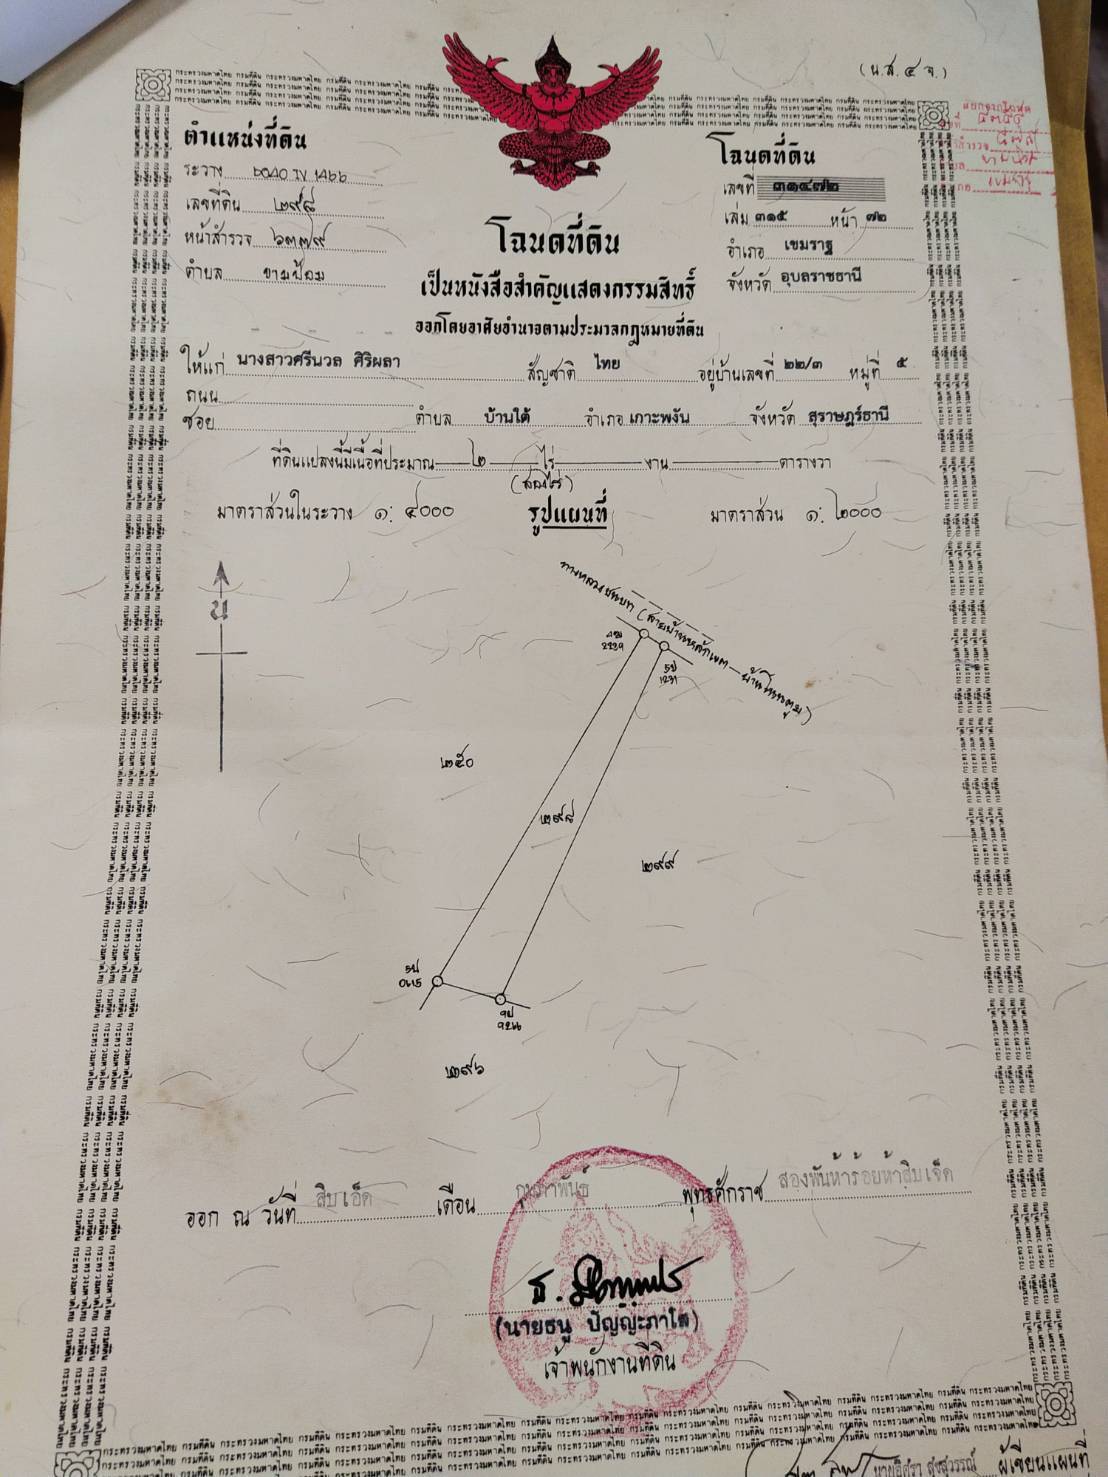 (น.ส. ๔ จ.)
ตำแหน่งที่ดิน
ระวาง
เลขที่ดิน ๒๙๘
หน้าสำรวจ ๖๓๗๙
ตำบล ขามป้อม
โฉนดที่ดิน
เลขที่ ๓๑๔๗๒
เล่ม ๓๑๕ หน้า ๗๒
อำเภอ เขมราฐ
จังหวัด อุบลราชธานี
โฉนดที่ดิน
เป็นหนังสือสำคัญแสดงกรรมสิทธิ์
ออกโดยอาศัยอำนาจตามประมวลกฎหมายที่ดิน
ให้แก่ นางสาวศรีนวล ศิริผลา สัญชาติ ไทย อยู่บ้านเลขที่ ๒๒/๓ หมู่ที่ ๕
ถนน
ซอย ตำบล บ้านใต้ อำเภอ เกาะพงัน จังหวัด สุราษฎร์ธานี
ที่ดินแปลงนี้มีเนื้อที่ประมาณ ๒ ไร่ งาน ตารางวา
(สองไร่)
มาตราส่วนในระวาง ๑: ๔๐๐๐ รูปแผนที่ มาตราส่วน ๑: ๒๐๐๐
น
ทางหลวงชนบท
๒๕๐
๒๙๘
๒๙๙
๒๙๖
ออก ณ วันที่ สิบเอ็ด เดือน กุมภาพันธ์ พุทธศักราช สองพันห้าร้อยห้าสิบเจ็ด
(นายธนู ปัญญะภาโส)
เจ้าพนักงานที่ดิน
ผู้เขียนแผนที่
กระทรวงมหาดไทย กรมที่ดิน